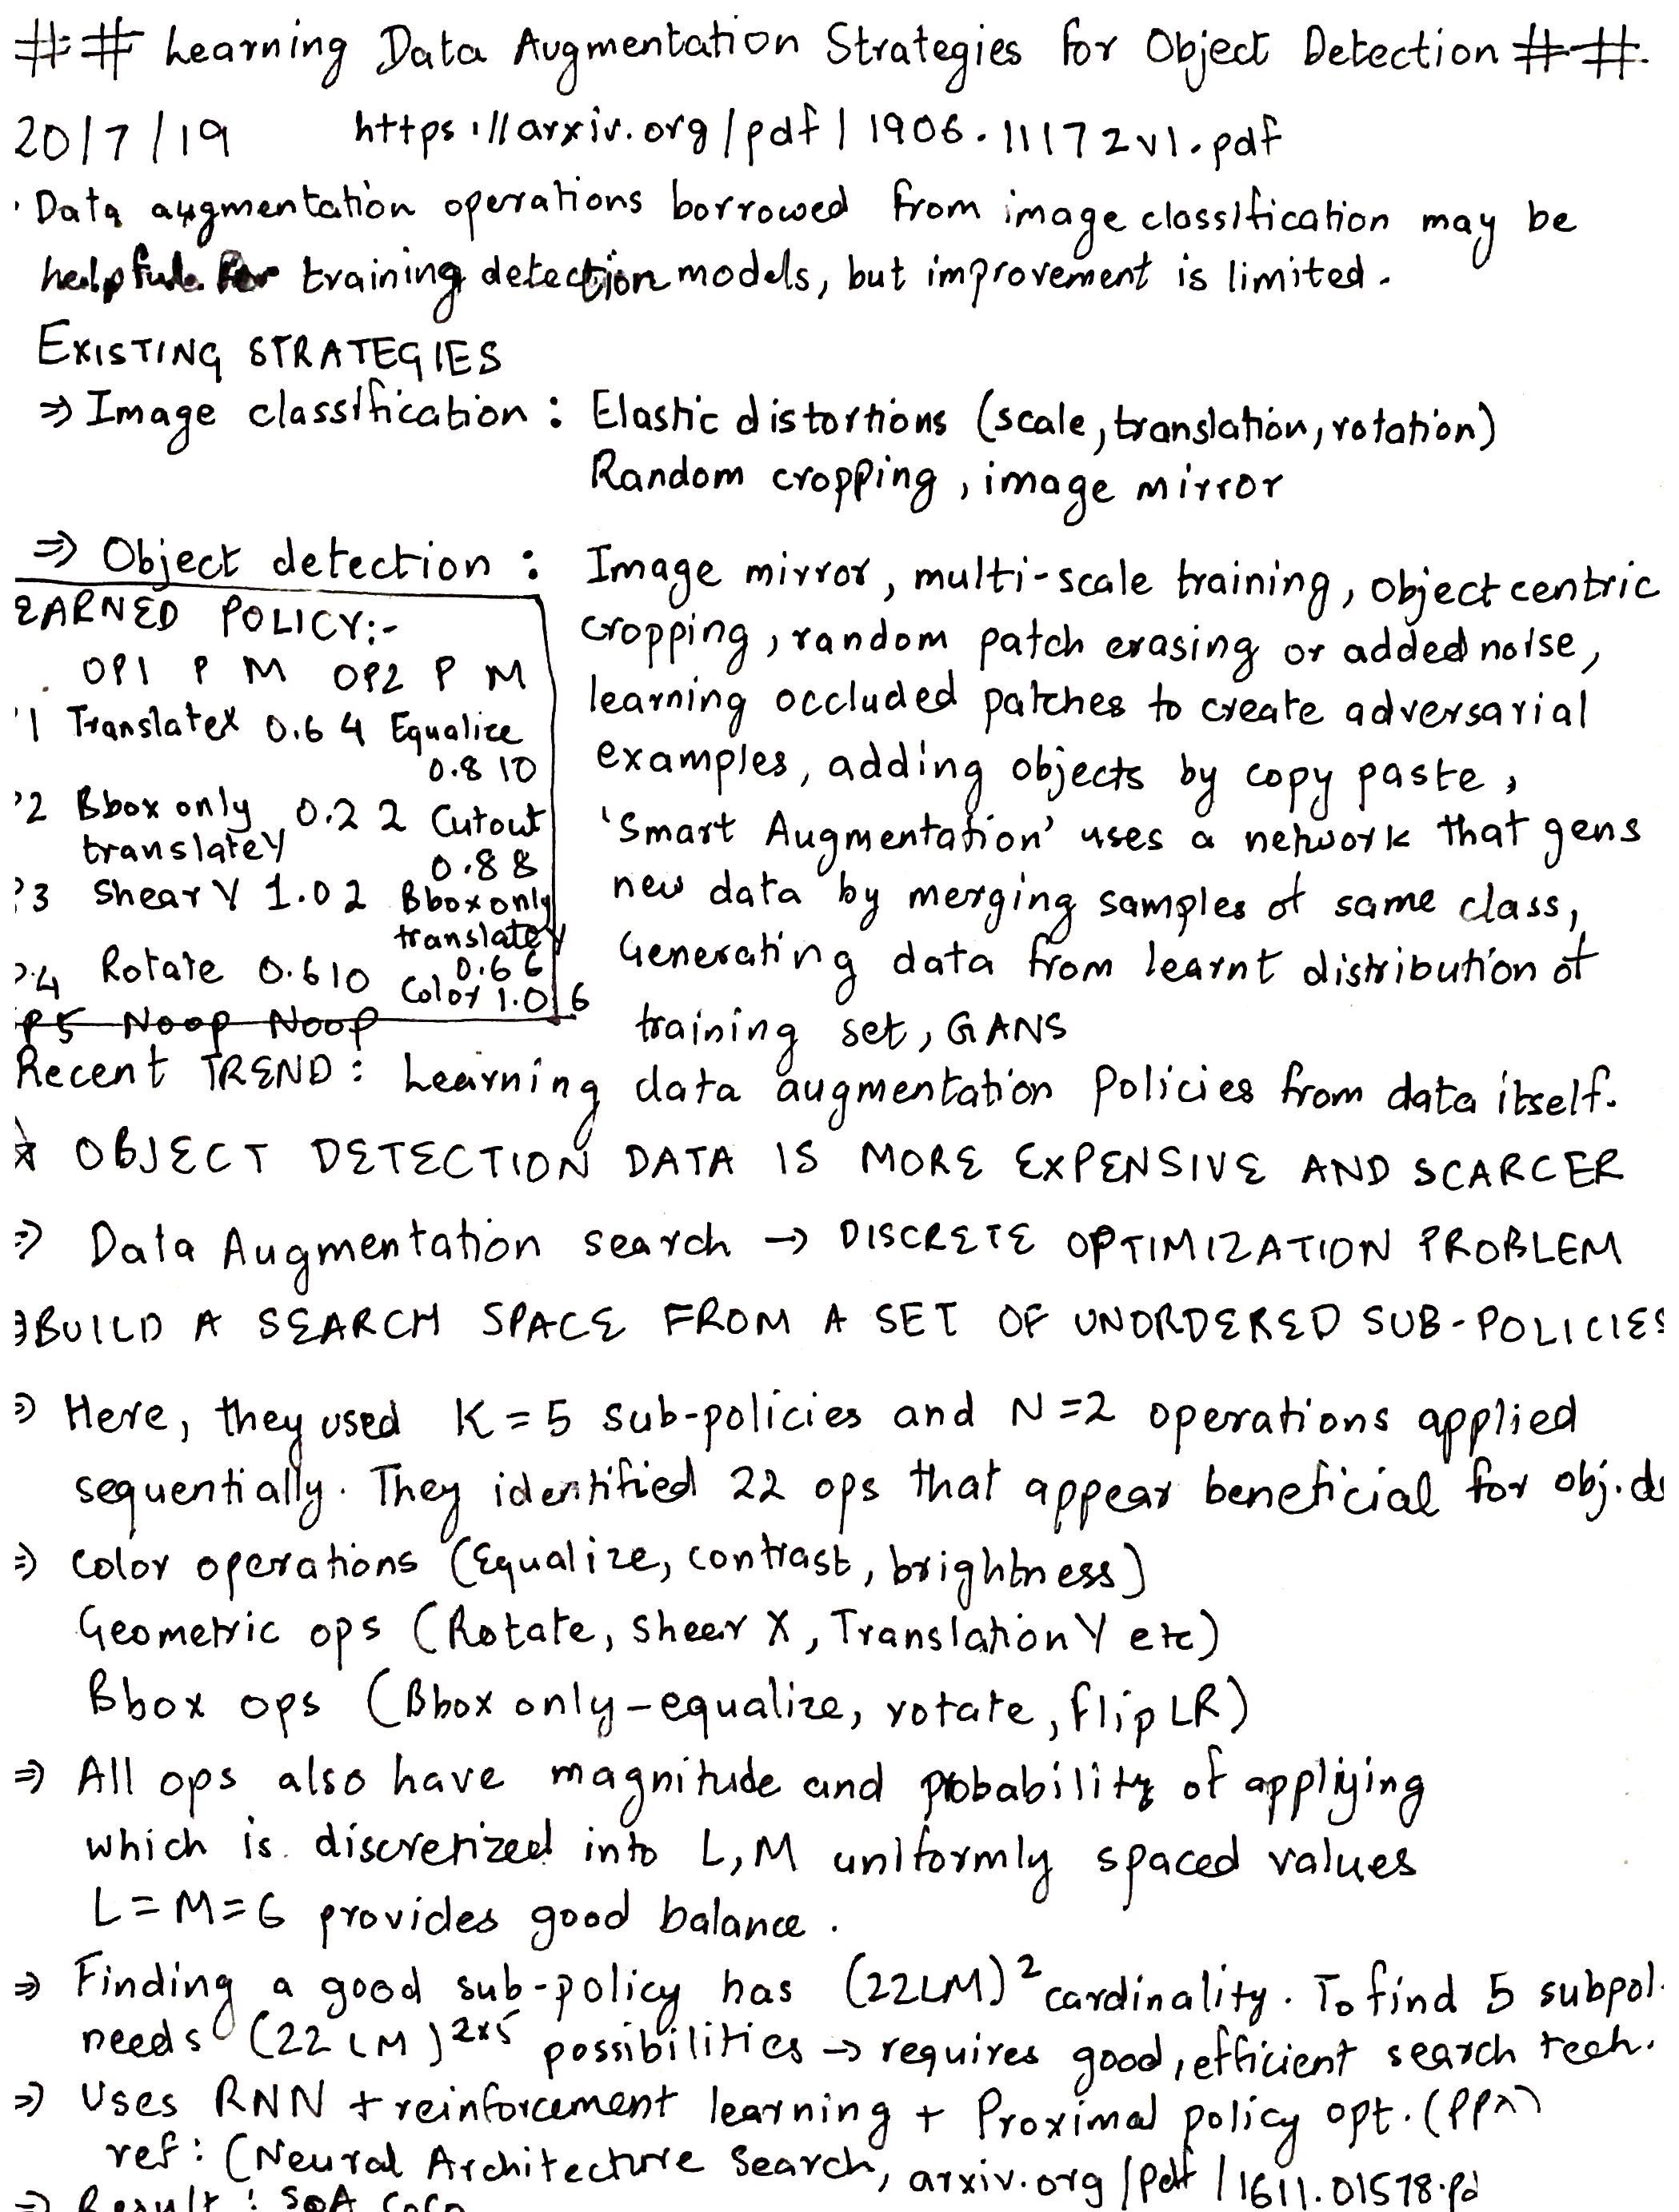 ## Learning Data Augmentation Strategies for Object Detection ##
20/7/19 https://arxiv.org/pdf/1906.11172v1.pdf
· Data augmentation operations borrowed from image classification may be
helpful for training detection models, but improvement is limited.
EXISTING STRATEGIES
⇒ Image classification : Elastic distortions (scale, translation, rotation)
Random cropping, image mirror
⇒ Object detection : Image mirror, multi-scale training, object centric
cropping, random patch erasing or added noise,
learning occluded patches to create adversarial
examples, adding objects by copy paste,
'Smart Augmentation' uses a network that gens
new data by merging samples of same class,
Generating data from learnt distribution of
training set, GANS
EARNED POLICY:-
OP1 P M OP2 P M
1 TranslateX 0.6 4 Equalize
0.8 10
2 Bbox only 0.2 2 Cutout
translateY
0.8 8
3 Shear Y 1.0 2 Bbox only
translateY
0.6 6
4 Rotate 0.6 10 Color 1.0 6
P5 Noop Noop
Recent TREND : Learning data augmentation Policies from data itself.
★ OBJECT DETECTION DATA IS MORE EXPENSIVE AND SCARCER
⇒ Data Augmentation search → DISCRETE OPTIMIZATION PROBLEM
⇒ BUILD A SEARCH SPACE FROM A SET OF UNORDERED SUB-POLICIES
⇒ Here, they used K=5 sub-policies and N=2 operations applied
sequentially. They identified 22 ops that appear beneficial for obj. de
⇒ Color operations (Equalize, contrast, brightness)
Geometric ops (Rotate, Shear X, Translation Y etc)
Bbox ops (Bbox only-equalize, rotate, flip LR)
⇒ All ops also have magnitude and probability of applying
which is discretized into L, M uniformly spaced values
L=M=6 provides good balance.
⇒ Finding a good sub-policy has (22LM)² cardinality. To find 5 subpol.
needs (22 LM)²ˣ⁵ possibilities → requires good, efficient search tech.
⇒ Uses RNN + reinforcement learning + Proximal policy opt. (PPO)
ref: (Neural Architecture Search, arxiv.org/pdf/1611.01578.pd
⇒ Result : SOA COCO